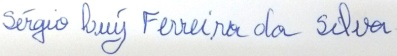 Sérgio Luiz Ferreira da Silva